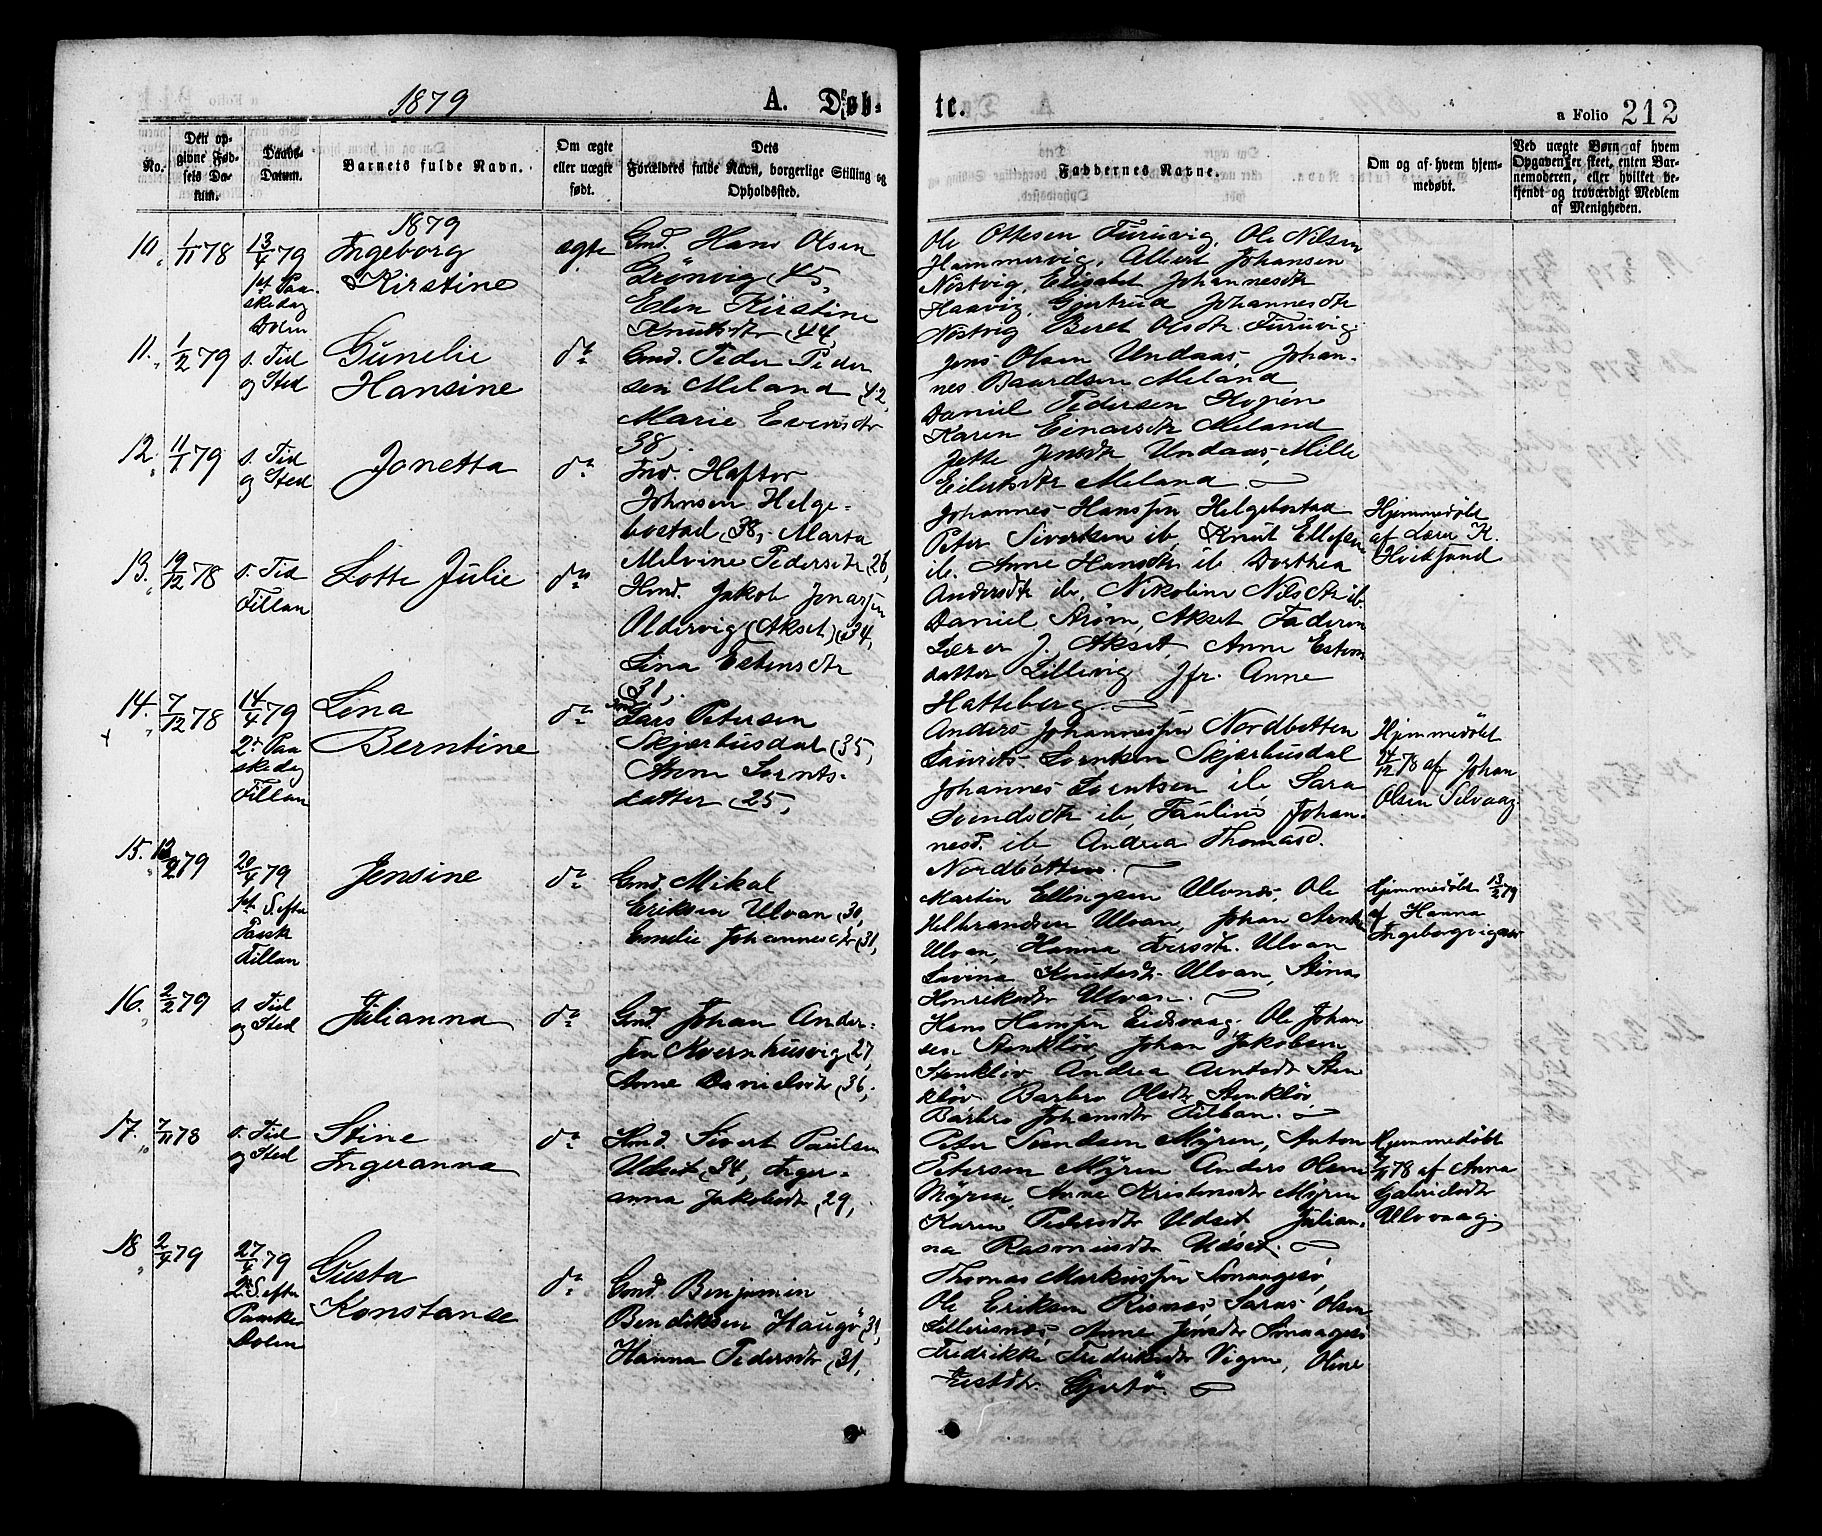 1879
A. Døb-
te.
a Folio 212
No.
Den op-
givne Fød-
sels Da-
tum.
Daabs-
Datum.
Barnets fulde Navn.
Om ægte
eller uægte
født.
Dets
Forældres fulde Navn, borgerlige Stilling og
Opholdssted.
Faddernes Navne.
Om og af hvem hjem-
medøbt.
Ved uægte Børn af hvem
Opgaven er skeet, enten Bar-
nemoderen, eller hvilket be-
kjendt og troværdigt Medlem
af Menigheden.
1879
10. 1/11 78
13/4 79
1st Paa-
skedag
Dolm
Ingeborg
Kirstine
ægte
Gmd. Hans Olsen
Grönvig (45,
Elen Kirstine
Knutsdtr (44,
Ole Ottesen Furuvig, Ole Nilsen
Hammervig, Albert Johansen
Nöstvig, Elisabet Johannesdtr
Haavig, Gjertrud Johannesdtr
Nöstvig Beret Olsdtr Furuvig.
11. 1/2 79
s. Tid
og Sted
Gunelie
Hansine
do
Gmd. Peder Peder
sen Meland (42,
Marie Evensdtr
38,
Jens Olsen Undaas, Johan-
nes Baardsen Meland
Daniel Pedersen Hopen
Karen Einarsdtr Meland
Jette Jensdtr Undaas, Mille
Eilertsdtr Meland
12. 11/1 79
s. Tid
og Sted
Jonetta
do
Ind. Haftor
Johnsen Helge-
bostad (38, Marta
Melvine Pedersdtr (26,
Johannes Hanssen Helgebostad
Peter Sivertsen ib. Knut Ellefsen
ib. Anne Hansdtr ib Dorthea
Andersdtr ib, Nikoline Nilsdtr ib.
Hjemmedøbt
af Lærer K.
Hviksund
13. 19/12 78
s. Tid
Fillan
Lotte Julie
do
Hmd. Jakob Jonassen
Oldervig (Akset) (34,
Lina Estensdtr
(31,
Daniel Strøm, Akset Faderen
Lærer J. Akset, Anne Estens
datter Lillevig Jfr. Anne
Hatteberg
14. 7/12 78
14/4 79
2n Paa
skedag
Fillan
Lena
Berntine
do
Lars Petersen
Skjærbusdal (35,
Anne Lornts-
datter (25,
Anders Johannessen Nordbotten
Laurits Lorntsen Skjærbusdal
Johannes Lorntsen ib, Sara
Svendsdtr ib, Pauline Johan-
nesd. ib Andrea Thomasd.
Nordbotten.
Hjemmedøbt
14/12 78 af Johan
Olsen Selvaag
15. 12/2 79
20/4 79
1st S. eftr
Paask
Fillan
Jensine
do
Gmd. Mikal
Eriksen Ulvan (30,
Emelie Johannesdtr (31,
Martin Ellingsen Ulvnæs, Ole
Helbrandsen Ulvan, Johan Arnts.
Ulvan, Hanna Iversdtr. Ulvan
Lovina Knutsdtr Ulvan, Stina
Henriksdtr Ulvan.
Hjemmedøbt 13/2 79
af Hanna
Ingeborgvigen
16. 2/2 79
s. Tid
og Sted
Julianna
do
Gmd. Johan Ander-
sen Kvernhusvig (27,
Anne Danielsdtr (36,
Hans Hanssen Eidsvaag. Ole Johan
sen Stenkløv, Johan Jakobsen
Stenkløv Andrea Arntsdtr Sten
kløv Barbro Olsdtr Stenkløv
Barbro Johansdtr Fillan.
17. 7/11 78
s. Tid
og Sted
Stine
Ingeranna
do
Hmd Sivert Paulsen
Udset (34, Inger-
anna Jakobsdtr (29,
Peter Svendsen Myren, Anton
Petersen Myren Anders Olsen
Myren, Anne Kristensdtr Myren
Karen Pedersdtr Udset Julian-
na Rasmusdtr Udset.
Hjemmedøbt
7/11 78 af Anna
Gabrielsdtr
Ulvvaag.
18 2/4 79
27/4 79
2n S. eftr
Paaske
Dolm
Gusta
Konstanse
do
Gmd. Benjamin
Bendiksen Haugø (31,
Hanna Pedersdtr (31,
Thomas Markussen Smaagesø,
Ole Eriksen Risnæs, Saras Olsen
Lillerisnæs, Anne Jensdtr Smaagesø
Fredrikke Fredriksdtr Vigen, Oline
Gjertø.